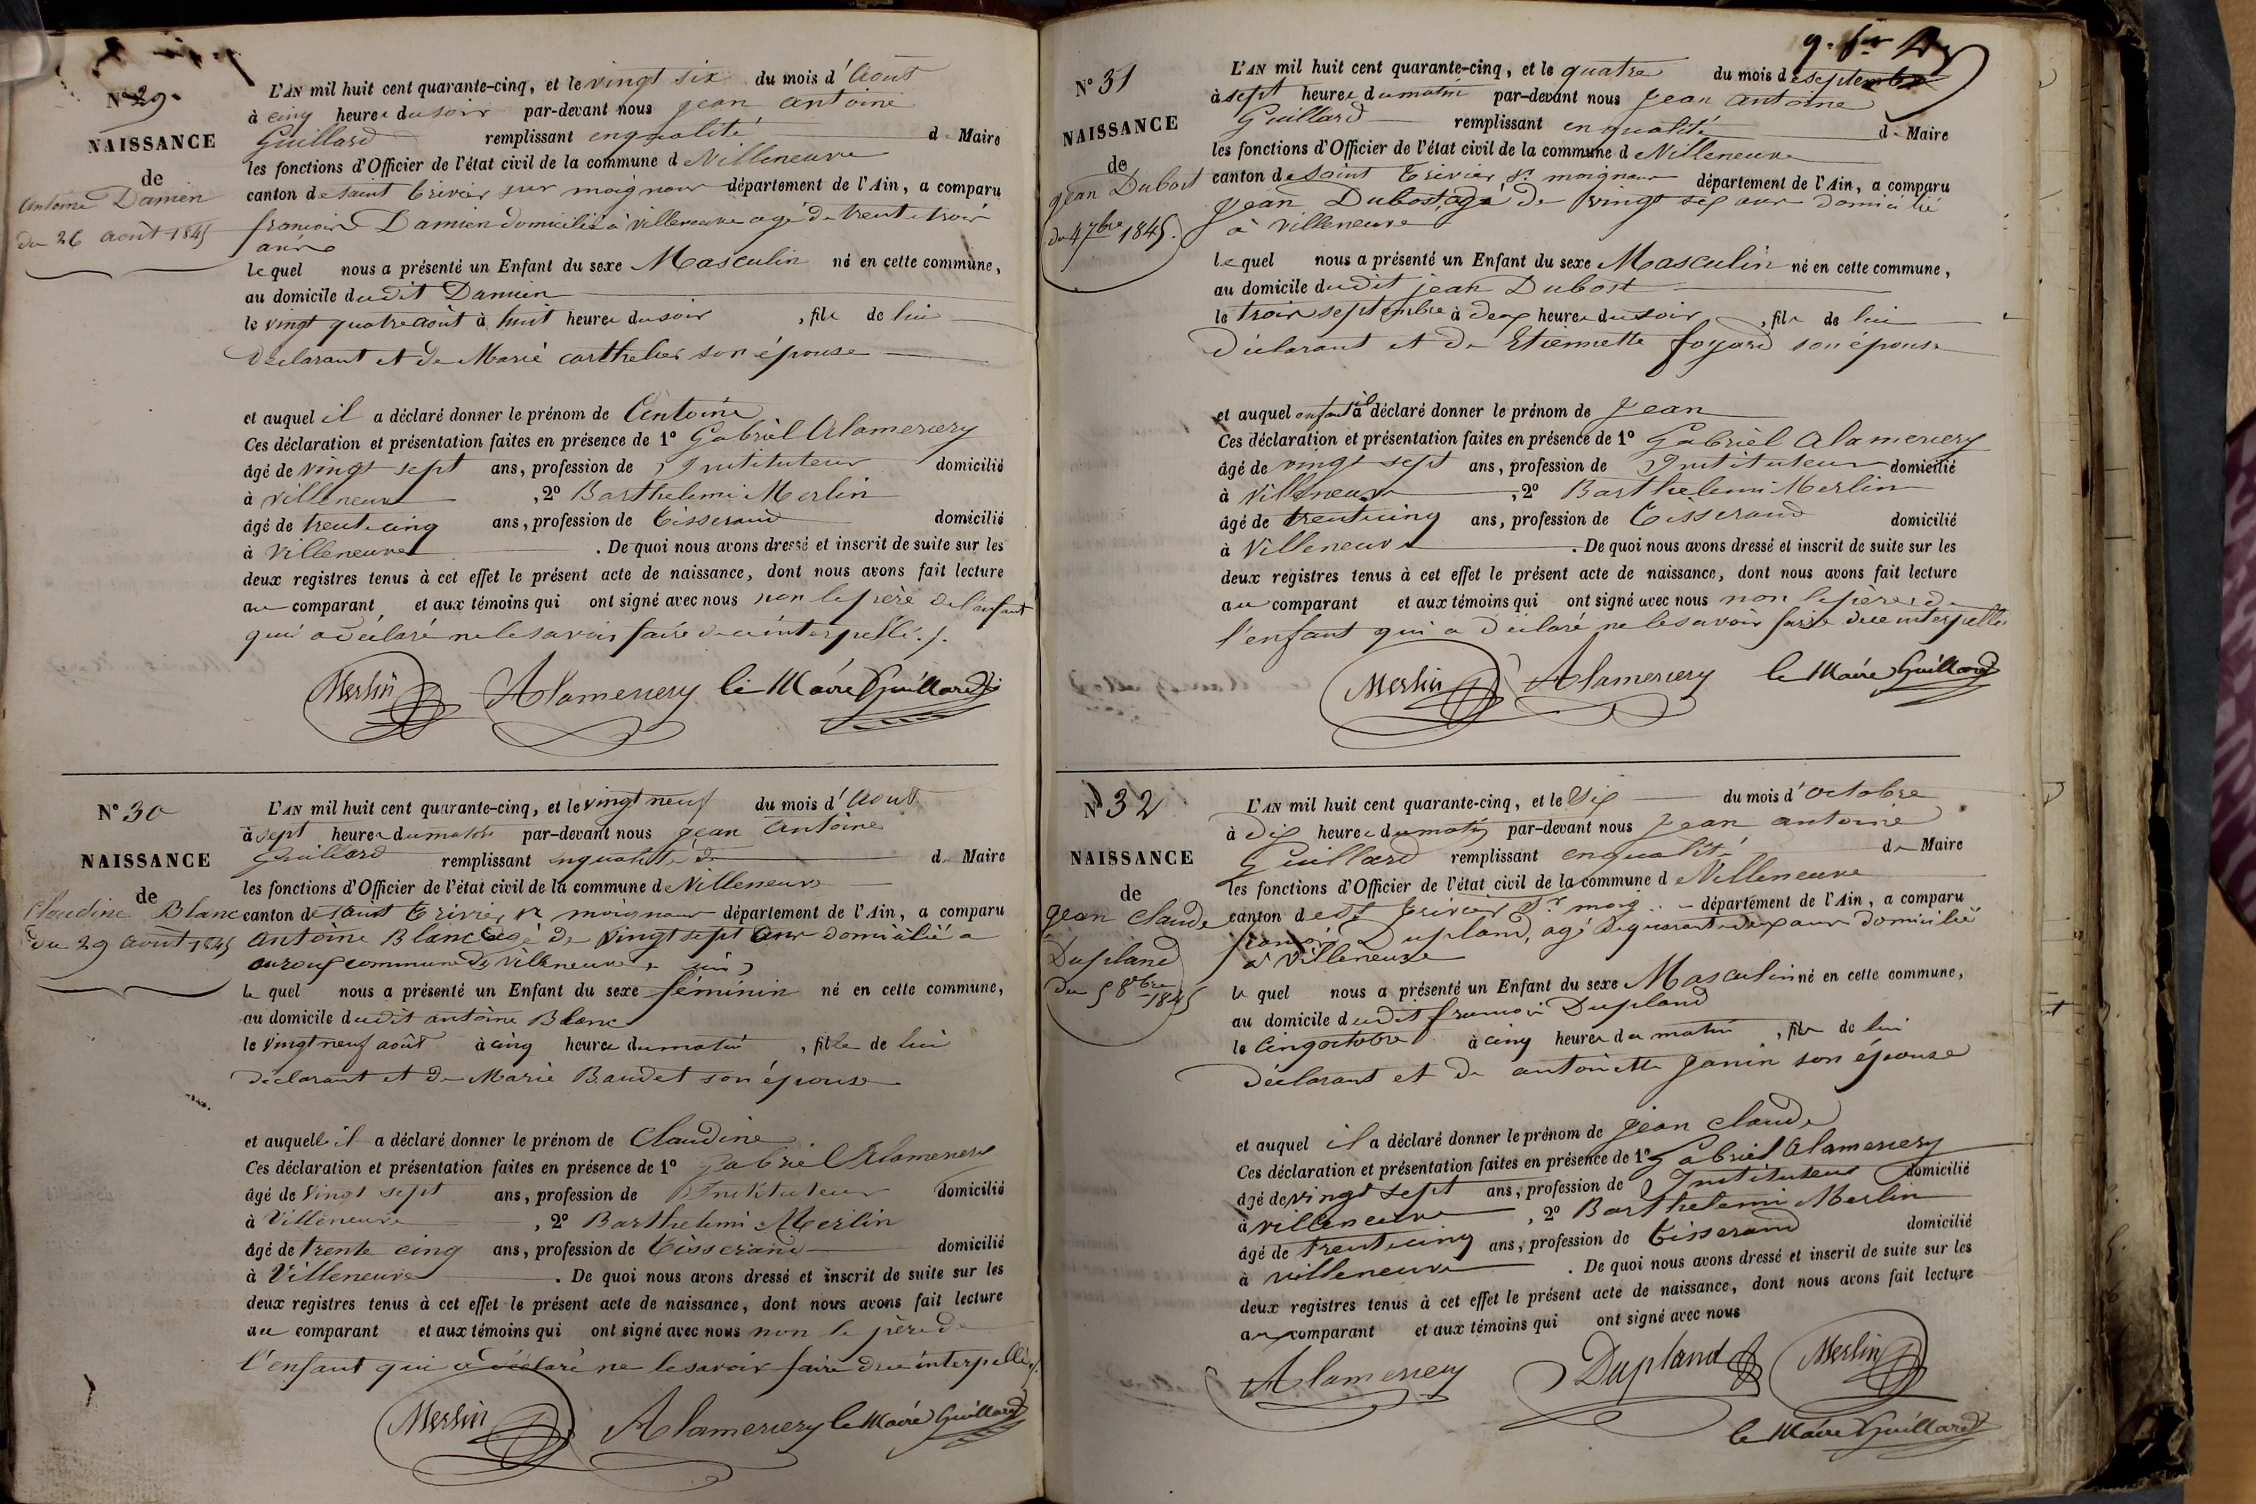 N° 29.
NAISSANCE
de
antoine Damien
du 26 août 1845
L'AN mil huit cent quarante-cinq, et le vingt six du mois d'Août
à cinq heures du soir par-devant nous jean antoine
Guillard remplissant en qualité de Maire
les fonctions d'Officier de l'état civil de la commune d Villeneuve
canton de saint trivier sur moignans département de l'Ain, a comparu
francois Damien domicilié à villeneuve agé de trente trois
ans
lequel nous a présenté un Enfant du sexe Masculin né en cette commune,
au domicile dudit Damien
le vingt quatre août à huit heures du soir, fils de lui
déclarant et de Marie carthelier son épouse
et auquel il a déclaré donner le prénom de Antoine
Ces déclaration et présentation faites en présence de 1° Gabriel Alamercery
âgé de vingt sept ans, profession de Instituteur domicilié
à villeneuve, 2° Barthelemi Merlin
âgé de trente cinq ans, profession de tisserand domicilié
à Villeneuve. De quoi nous avons dressé et inscrit de suite sur les
deux registres tenus à cet effet le présent acte de naissance, dont nous avons fait lecture
au comparant et aux témoins qui ont signé avec nous non le père de l'enfant
qui a déclaré ne le savoir faire de ce interpellé./.
Merlin Alamercery le Maire Guillard
N° 30
NAISSANCE
de
Claudine Blanc
du 29 août 1845
L'AN mil huit cent quarante-cinq, et le vingt neuf du mois d'Août
à sept heures du matin par-devant nous jean antoine
Guillard remplissant en qualité de de Maire
les fonctions d'Officier de l'état civil de la commune de Villeneuve
canton de saint trivier sr moignans département de l'Ain, a comparu
antoine Blanc agé de vingt sept ans domicilié a
commune de villeneuve
le quel nous a présenté un Enfant du sexe féminin né en cette commune,
au domicile dudit antoine Blanc
le vingt neuf août à cinq heures du matin, fille de lui
déclarant et de Marie Baudet son épouse
et auquelle il a déclaré donner le prénom de Claudine
Ces déclaration et présentation faites en présence de 1° Gabriel Alamercery
âgé de vingt sept ans, profession de Instituteur domicilié
à Villeneuve, 2° Barthelemi Merlin
âgé de trente cinq ans, profession de tisserand domicilié
à Villeneuve. De quoi nous avons dressé et inscrit de suite sur les
deux registres tenus à cet effet le présent acte de naissance, dont nous avons fait lecture
au comparant et aux témoins qui ont signé avec nous non le père de
l'enfant qui a déclaré ne le savoir faire de ce interpellé./.
Merlin Alamercery le Maire Guillard
N° 31
NAISSANCE
de
jean Dubost
du 4 7bre 1845.
L'AN mil huit cent quarante-cinq, et le quatre du mois de septembre
à sept heures du matin par-devant nous jean antoine
Guillard remplissant en qualité de Maire
les fonctions d'Officier de l'état civil de la commune d Villeneuve
canton de saint trivier sr moignans département de l'Ain, a comparu
jean Dubost, agé de vingt six ans domicilié
à villeneuve
lequel nous a présenté un Enfant du sexe Masculin né en cette commune,
au domicile dudit jean Dubost
le trois septembre à deux heures du soir, fils de lui
déclarant et de Etiennette foyard son épouse
et auquel enfant il a déclaré donner le prénom de jean
Ces déclaration et présentation faites en présence de 1° Gabriel Alamercery
âgé de vingt sept ans, profession de Instituteur domicilié
à Villeneuve, 2° Barthelemi Merlin
âgé de trente cinq ans, profession de tisserand domicilié
à Villeneuve. De quoi nous avons dressé et inscrit de suite sur les
deux registres tenus à cet effet le présent acte de naissance, dont nous avons fait lecture
au comparant et aux témoins qui ont signé avec nous non le père de
l'enfant qui a déclaré ne le savoir faire de ce interpellé
Merlin Alamercery le Maire Guillard
N° 32
NAISSANCE
de
jean Claude
Dupland
du 5 8bre 1845
L'AN mil huit cent quarante-cinq, et le Six du mois d'octobre
à dix heures du matin par-devant nous jean antoine
Guillard remplissant en qualité de Maire
les fonctions d'Officier de l'état civil de la commune d Villeneuve
canton de st trivier sr moig.. département de l'Ain, a comparu
francois Dupland, agé de quarante deux ans domicilié
à Villeneuve
le quel nous a présenté un Enfant du sexe Masculin né en cette commune,
au domicile dudit francois Dupland
le cinq octobre à cinq heures du matin, fils de lui
déclarant et de antoinette janin son épouse
et auquel il a déclaré donner le prénom de jean claude
Ces déclaration et présentation faites en présence de 1° Gabriel Alamercery
âgé de vingt sept ans, profession de Instituteur domicilié
à villeneuve, 2° Barthelemi Merlin
âgé de trente cinq ans, profession de tisserand domicilié
à villeneuve. De quoi nous avons dressé et inscrit de suite sur les
deux registres tenus à cet effet le présent acte de naissance, dont nous avons fait lecture
au comparant et aux témoins qui ont signé avec nous
Alamercery Dupland Merlin
le Maire Guillard